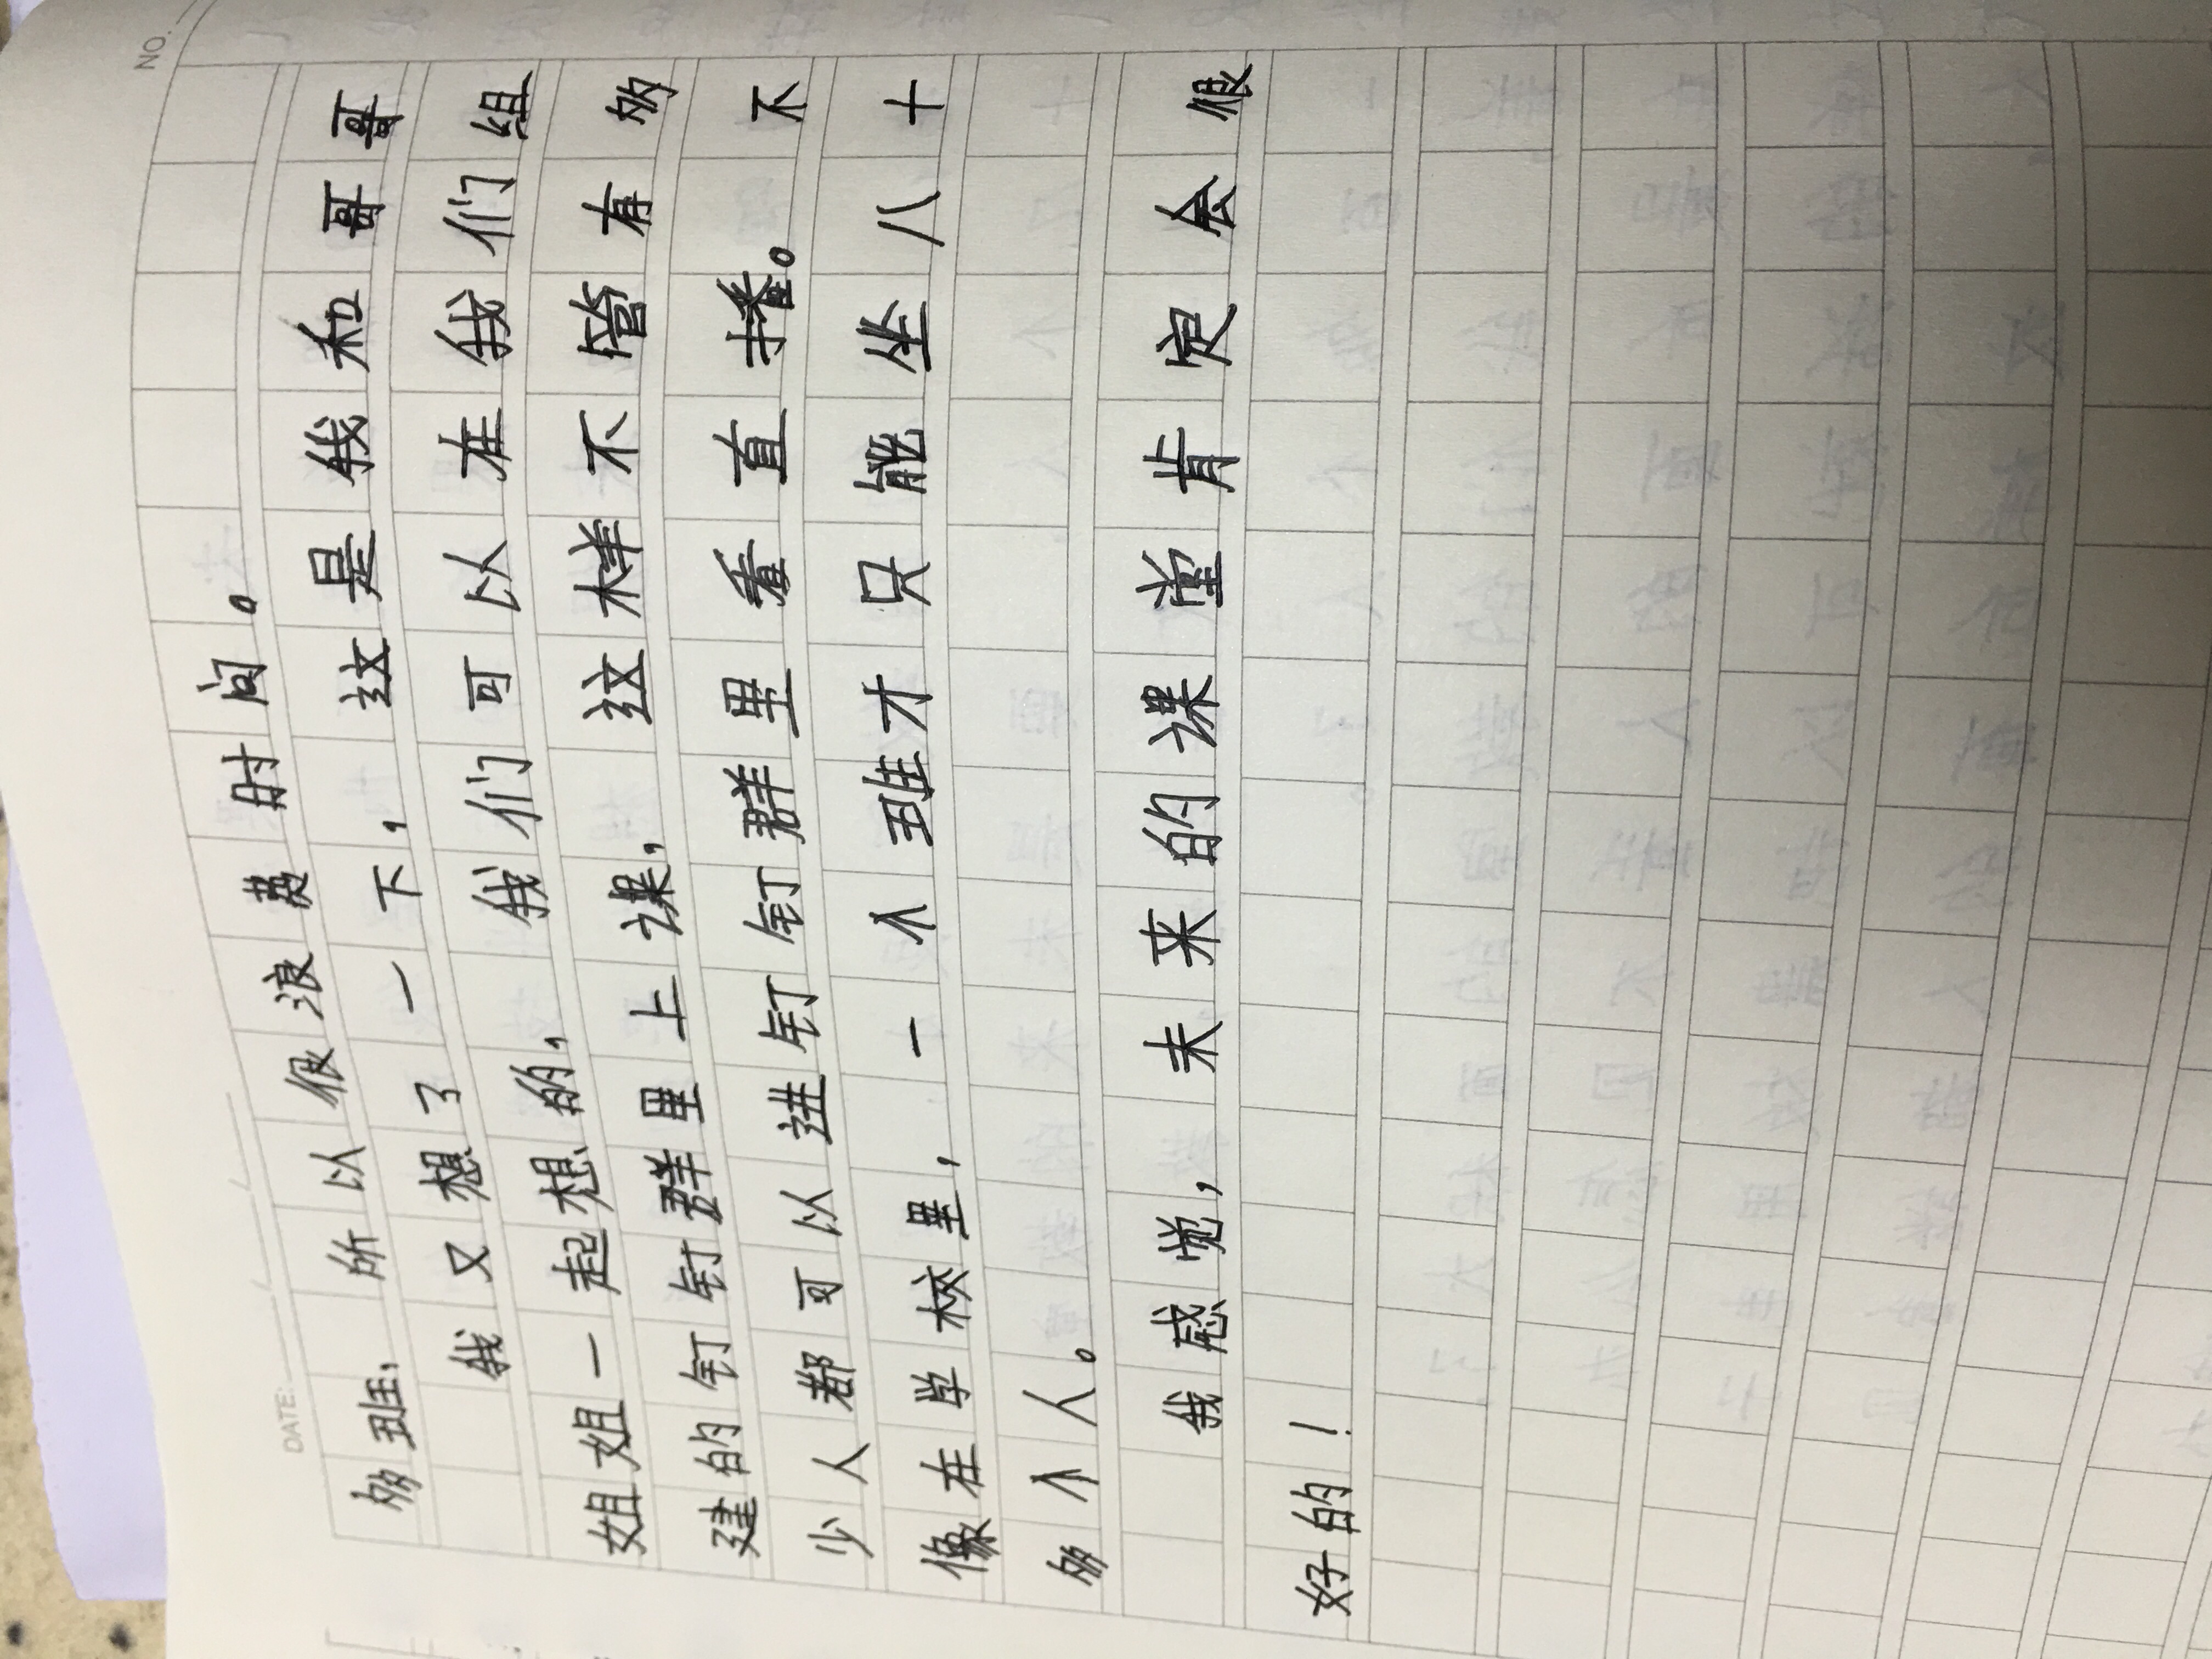 NO.
DATE:
多班，所以很浪费时间。
我又想了一下，这是我和哥哥
姐姐一起想的，我们可以在我们组
建的钉钉群里上课，这样不管有多
少人都可以进钉钉群里看直播。不
像在学校里，一个班才只能坐八十
多个人。
我感觉，未来的课堂肯定会很
好的！